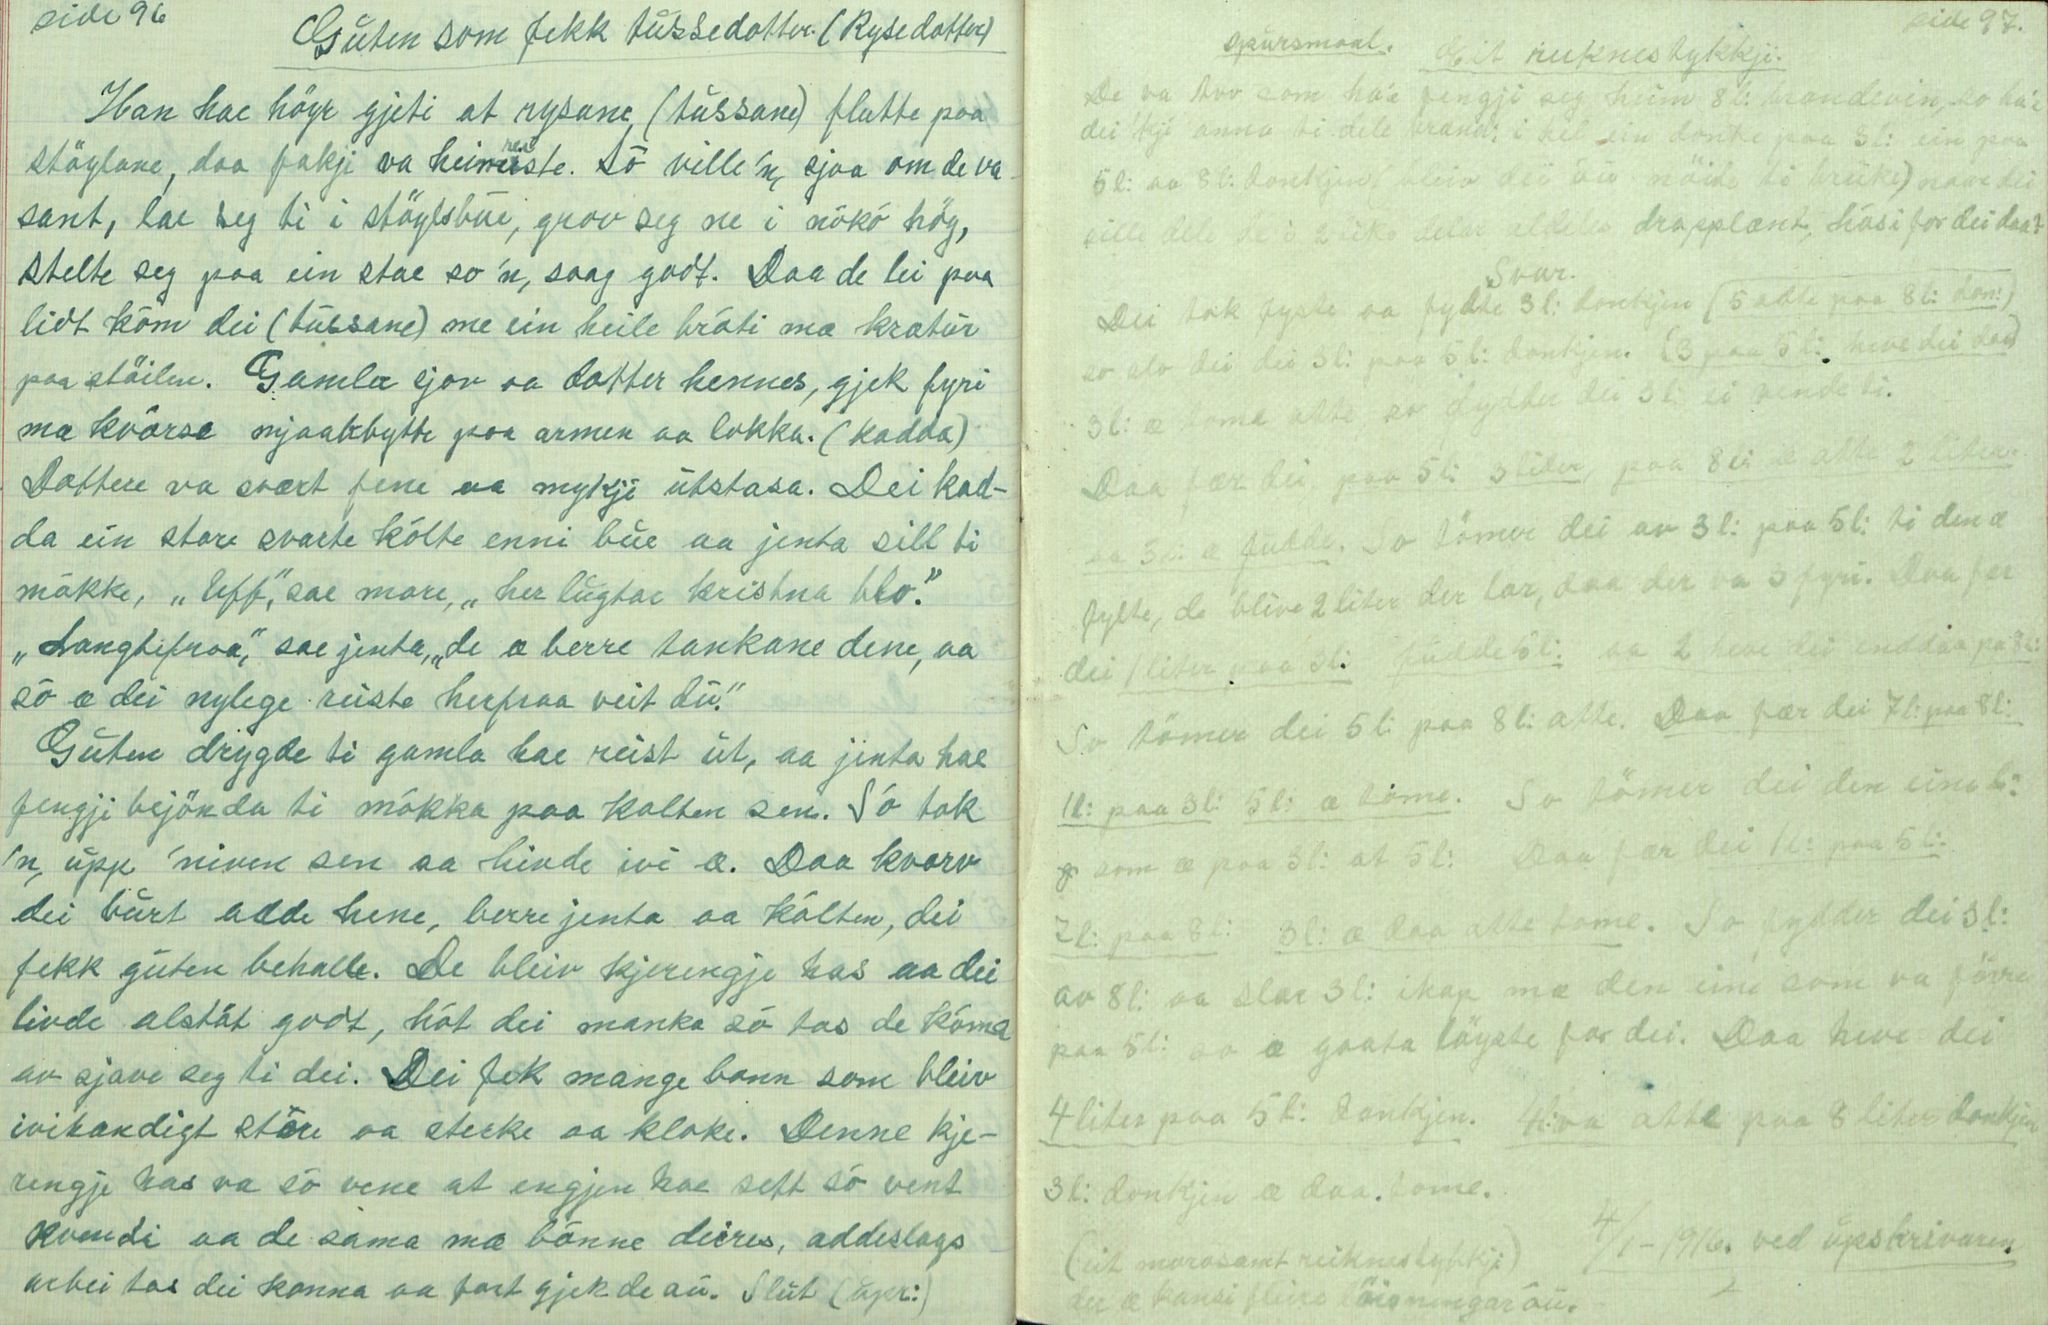 side 96
Guten som fekk tussedotter. (Rysedotter)
Han hae höyr gjeti at rysane (tussane) flutte paa
stöylane, daa fokji va heimreiste. Sö ville 'n, sjaa om de va
sant, lae seg ti i stöylsbue, grov seg ne i nökó hög,
stelte seg paa ein stae so 'n, saag godt. Daa de lei paa
lidt köm dei (tussane) me ein heile bróti mæ krætur
paa stöilen. Gamla sjøv aa dotter hennes, gjek fyri
mæ kvórse mjaalkbytte paa armen aa lokka. (kadda)
Dottere va svært fene aa mykji utstasa. Dei kad-
da ein store svarte kólte enni bue aa jenta sill ti
mókke, „Uff," sae more, „her lugtar kristna blo."
„Langtifraa," sae jenta, „de æ berre tankane dene, aa
sö æ dei nylege reiste herfraa veit du."
Guten drygde ti gamla hae reist ut, aa jenta hae
fengji bejönda ti mókka paa kolten sen. Só tok
'n, upp 'niven sen aa hivde ivi æ. Daa kvarv
dei burt adde hene, berre jenta aa kólten, dei
fekk guten behalle. De bleiv kjerengje has aa dei
livde alstöt godt, hót dei manka só tos de kóma
av sjave seg ti dei. Dei fek mange bonn som bleiv
ivikandigt störe aa sterke aa kloke. Denne kje-
rengje has va só vene at engjen hae sett só vent
kvendi aa de sama mæ bónne deires, addeslags
arbei tos dei konna aa fort gjek de au. Slut (upr:)
side 97.
spursmaal. Eit reiknestykkji.
De va tvo som ha'e fengji seg heim 8 l: brændevin, so ha'e
dei 'kji anna ti dele brænd: i hel ein donke paa 3 l: ein paa
5 l: aa 8 l: donkjen dei au nöide ti bruke)
sille dele de i 2 like delar aldeles drapplænt, hósi for dei daa?
Svar.
Dei tok fyste aa fydte 3 l: donkjen (5 atte paa 8 l: don:)
so slo dei dei 3 l: paa 5 l: donkjen. (3 paa 5 l: heve dei daa)
3 l: æ tome atte so fydder dei 3 l: ei vende ti.
Daa fær dei paa 5 l: 3 liter, paa 8 l: æ atte 2 liter.
aa 3 l: æ fudde. So tömer dei av 3 l: paa 5 l: ti den æ
fylte, de blive 2 liter der lar, daa der va 3 fyri. Daa fær
dei 1 liter paa 3 l: fudde 5 l: aa 2 heve dei enddaa pa 8 l:
So tömer dei 5 l: paa 8 l: atte. Daa fær dei 7 l: paa 8 l:
1 l: paa 3 l: 5 l: æ tome. So tömer dei den eine l:
som æ paa 3 l: at 5 l: Daa fær dei 1 l: paa 5 l:
7 l: paa 8 l: 3 l: æ daa atte tome. So fydder dei 3 l:
av 8 l: aa slær 3 l: ikap mæ den eine som va förre
paa 5 l: so æ gaata löyste for dei. Daa heve dei
4 liter paa 5 l: donkjen. 4 l: va atte paa 8 liter donkjen
3 l: donkjen æ daa tome.
(eit morosamt reiknestykkji)
4/1-1916. ved upskrivaren
der æ kansi fleire löisningar au.